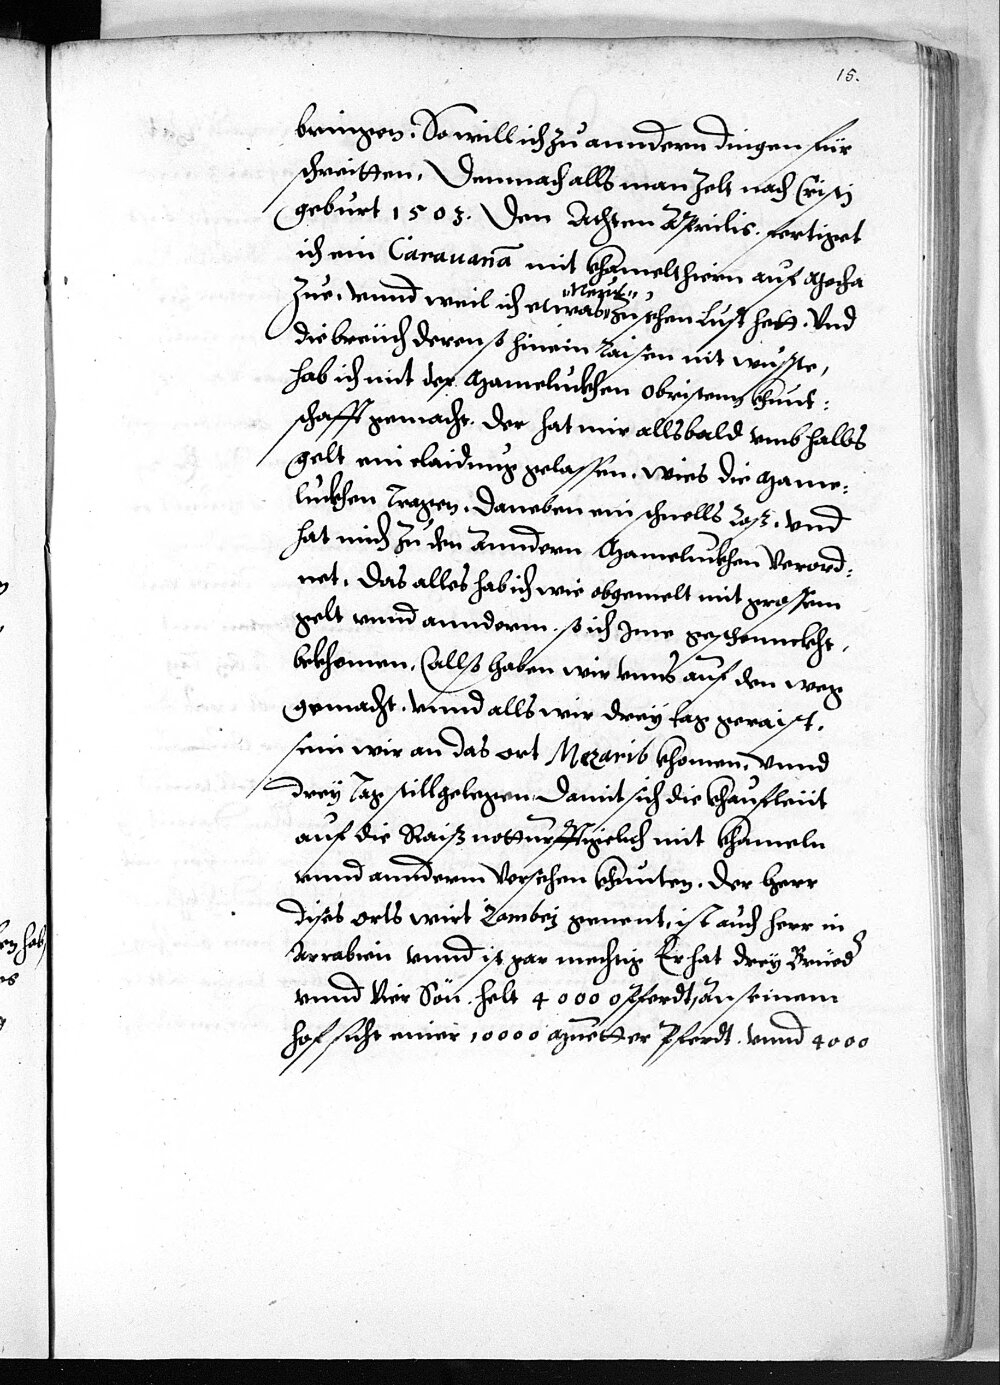 15.
bringen. So will ich zu anndern dingen für
schreitten, Demnach alls man Zelt nach Cristj
geburt 1503. Den Achten Aprilis. fertiget
ich ein Carauana mit khamelthiern auf Mecha
Zue, vnnd weil ich etwas Neus zu sehen Lust hett. Vnd
die breüch deren so hinein raisen nit wusste,
hab ich mit der Mameluckhen obristenn khund-
schafft gemacht. der hat mir allsbald vmb halbs
gelt ein claidung gelassen, wies die Mame-
luckhen tragen. Daneben ein schnells roß. vnd
hat mich zu den Anndern Mameluckhen Verord-
net. Das alles hab ich wie obgemelt mit grossem
gelt vnnd annderm, so ich Ime geschennckht,
bekhomen, Also haben wir vnns auf den weg
gemacht. vnnd alls wir drey tag geraist,
sein wir an das ort Mezarib khomen, vnnd
drey Tag still gelegen Damit sich die khaufleüt
auf die Raiß notturfftigelich mit khameln
vnnd annderm Versehen khunten. Der herr
dises orts wirt Zambej genent, ist auch herr in
Arrabien vnnd ist gar mechtig Er hat drey Brüed
vnnd Vier Sön. helt 40000 Pferdt, an seinem
hof sicht einer 10000 Muetter Pferdt. vnnd 4000
en hab